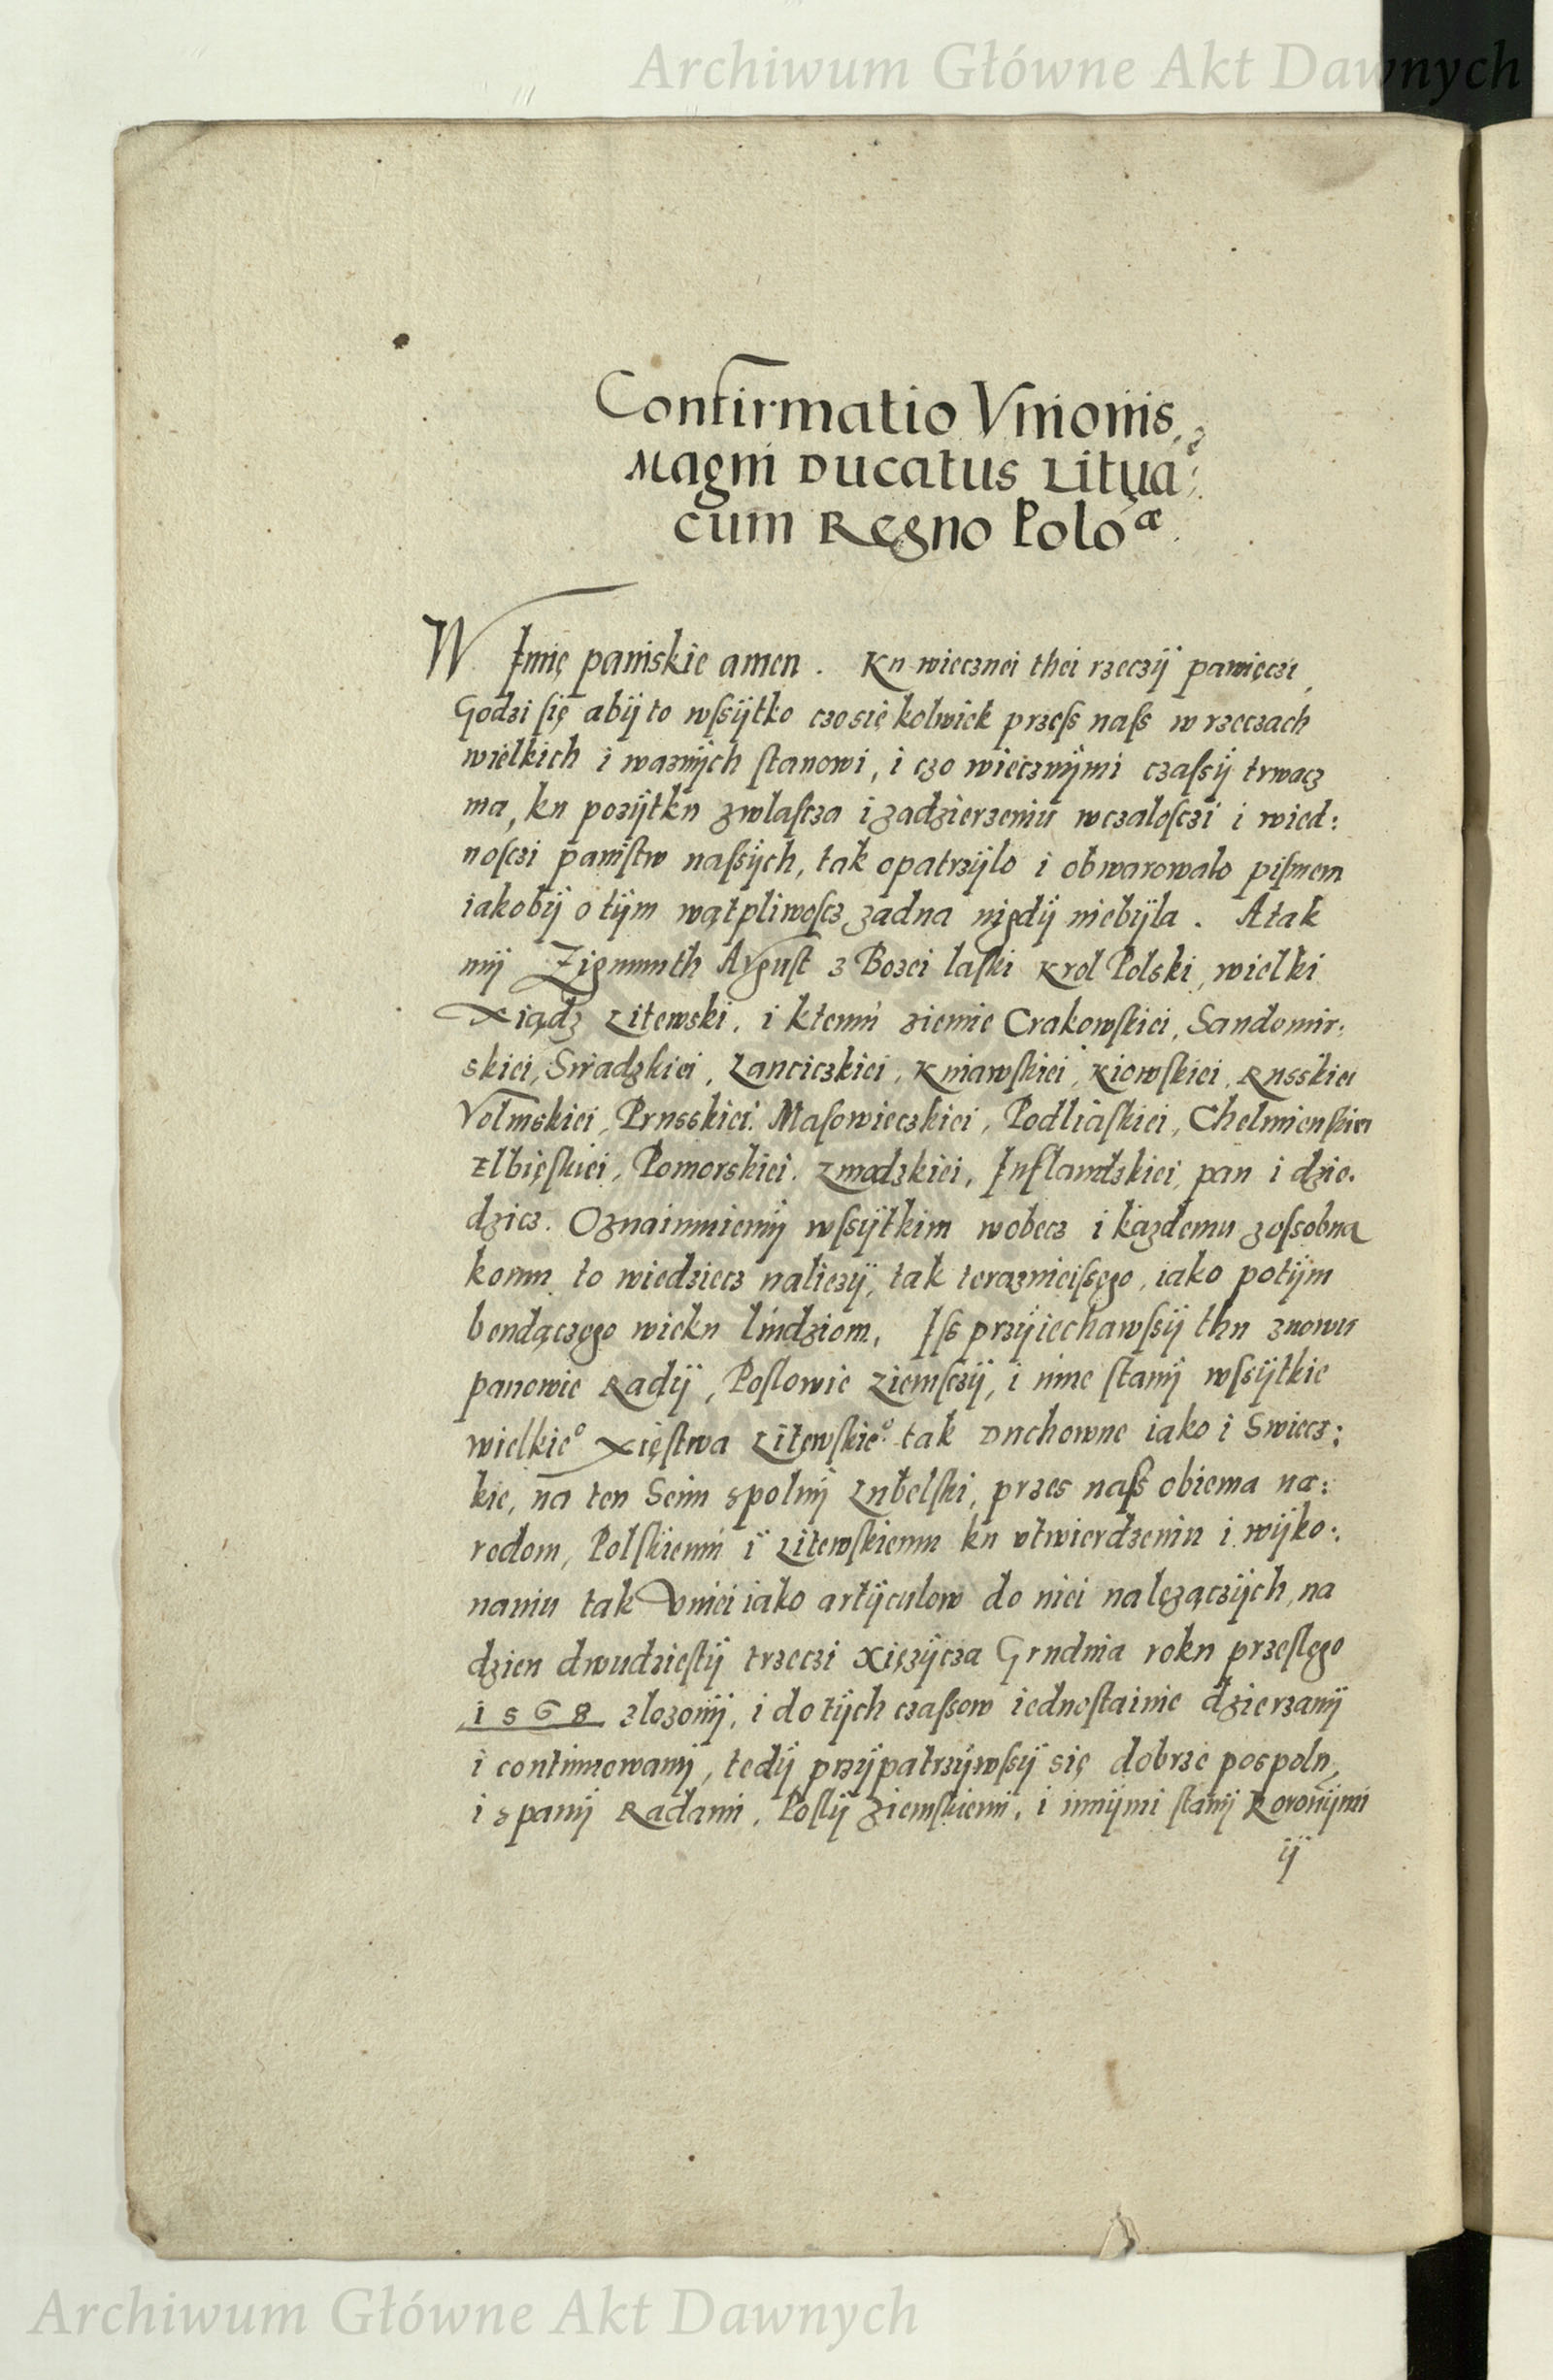 Archiwum Główne Akt Dawnych
Confirmatio Vnionis
Magni Ducatus Litua
cum Regno Poloæ
W Imię panskie amen. Ku wiecznei thei rzeczÿ pamięczi,
Godzi się abÿ to wſsÿtko czosię kolwiek przeſs naſs w rzeczach
wielkich i waznÿch ſtanowi, i czo wiecznÿmi czaſsÿ trwacz
ma, ku pozÿtku zwlaſcza i zadzierzeniu wczaloſczi i wied:
noſczi panſtw naſsÿch, tak opatrzÿlo i obwarowalo piſmem
iakobÿ o tÿm wątpliwoſcz zadna nigdÿ niebÿla. Atak
mÿ Zigmunth Auguſt z Bozei laſki Krol Polski, wielki
Xiądz Litewski, i ktemu ziemie Crakowſkiei, Sandomir:
skiei, Siradzkiei, Lancickiei, Kuiawſkiei, Kiowſkiei, Russkiei
Volinskiei, Prusskiei, Maſowieczkiei, Podliaſkiei, Chelmienſkiei
Elbięſkiei, Pomorskiei, Zmodzkiei, Inflandzkiei, pan i dzie:
dzicz. Oznaimuiemÿ wſsÿtkim wobecz i kazdemu zoſsobna
komu to wiedziecz naliezÿ, tak terazneiſsęgo, iako potÿm
bendączego wieku liudziom, Iſs przÿiechawſsÿ thu znowu
panowie Radÿ, Poſlowie Ziemſczÿ, i inne ſtanÿ wſsÿtkie
wielkieº Xięſtwa Litewſkieº tak Duchowne iako i Swiecz:
kie, na ten Seim spolnÿ Lubelſki, przes naſs obiema na:
rodom, Polſkiemu i Litewſkiemu ku vtwierdzeniu i wÿko:
naniu tak Uniei iako artÿculow do niei nalęzączÿch, na
dzien dwudzieſtÿ trzeczi Xięzÿcza Grudnia roku przeſlęgo
1568 zlozonÿ, i do tÿch czaſsow iednoſtainie dzierzanÿ
i continuowanÿ, tedÿ przÿpatrzÿwſsÿ się dobrze pospolu
i spanÿ Radami, Poſlÿ Ziemſkiemi, i innÿmi ſtanÿ Koronÿmi
ÿ
Archiwum Główne Akt Dawnych